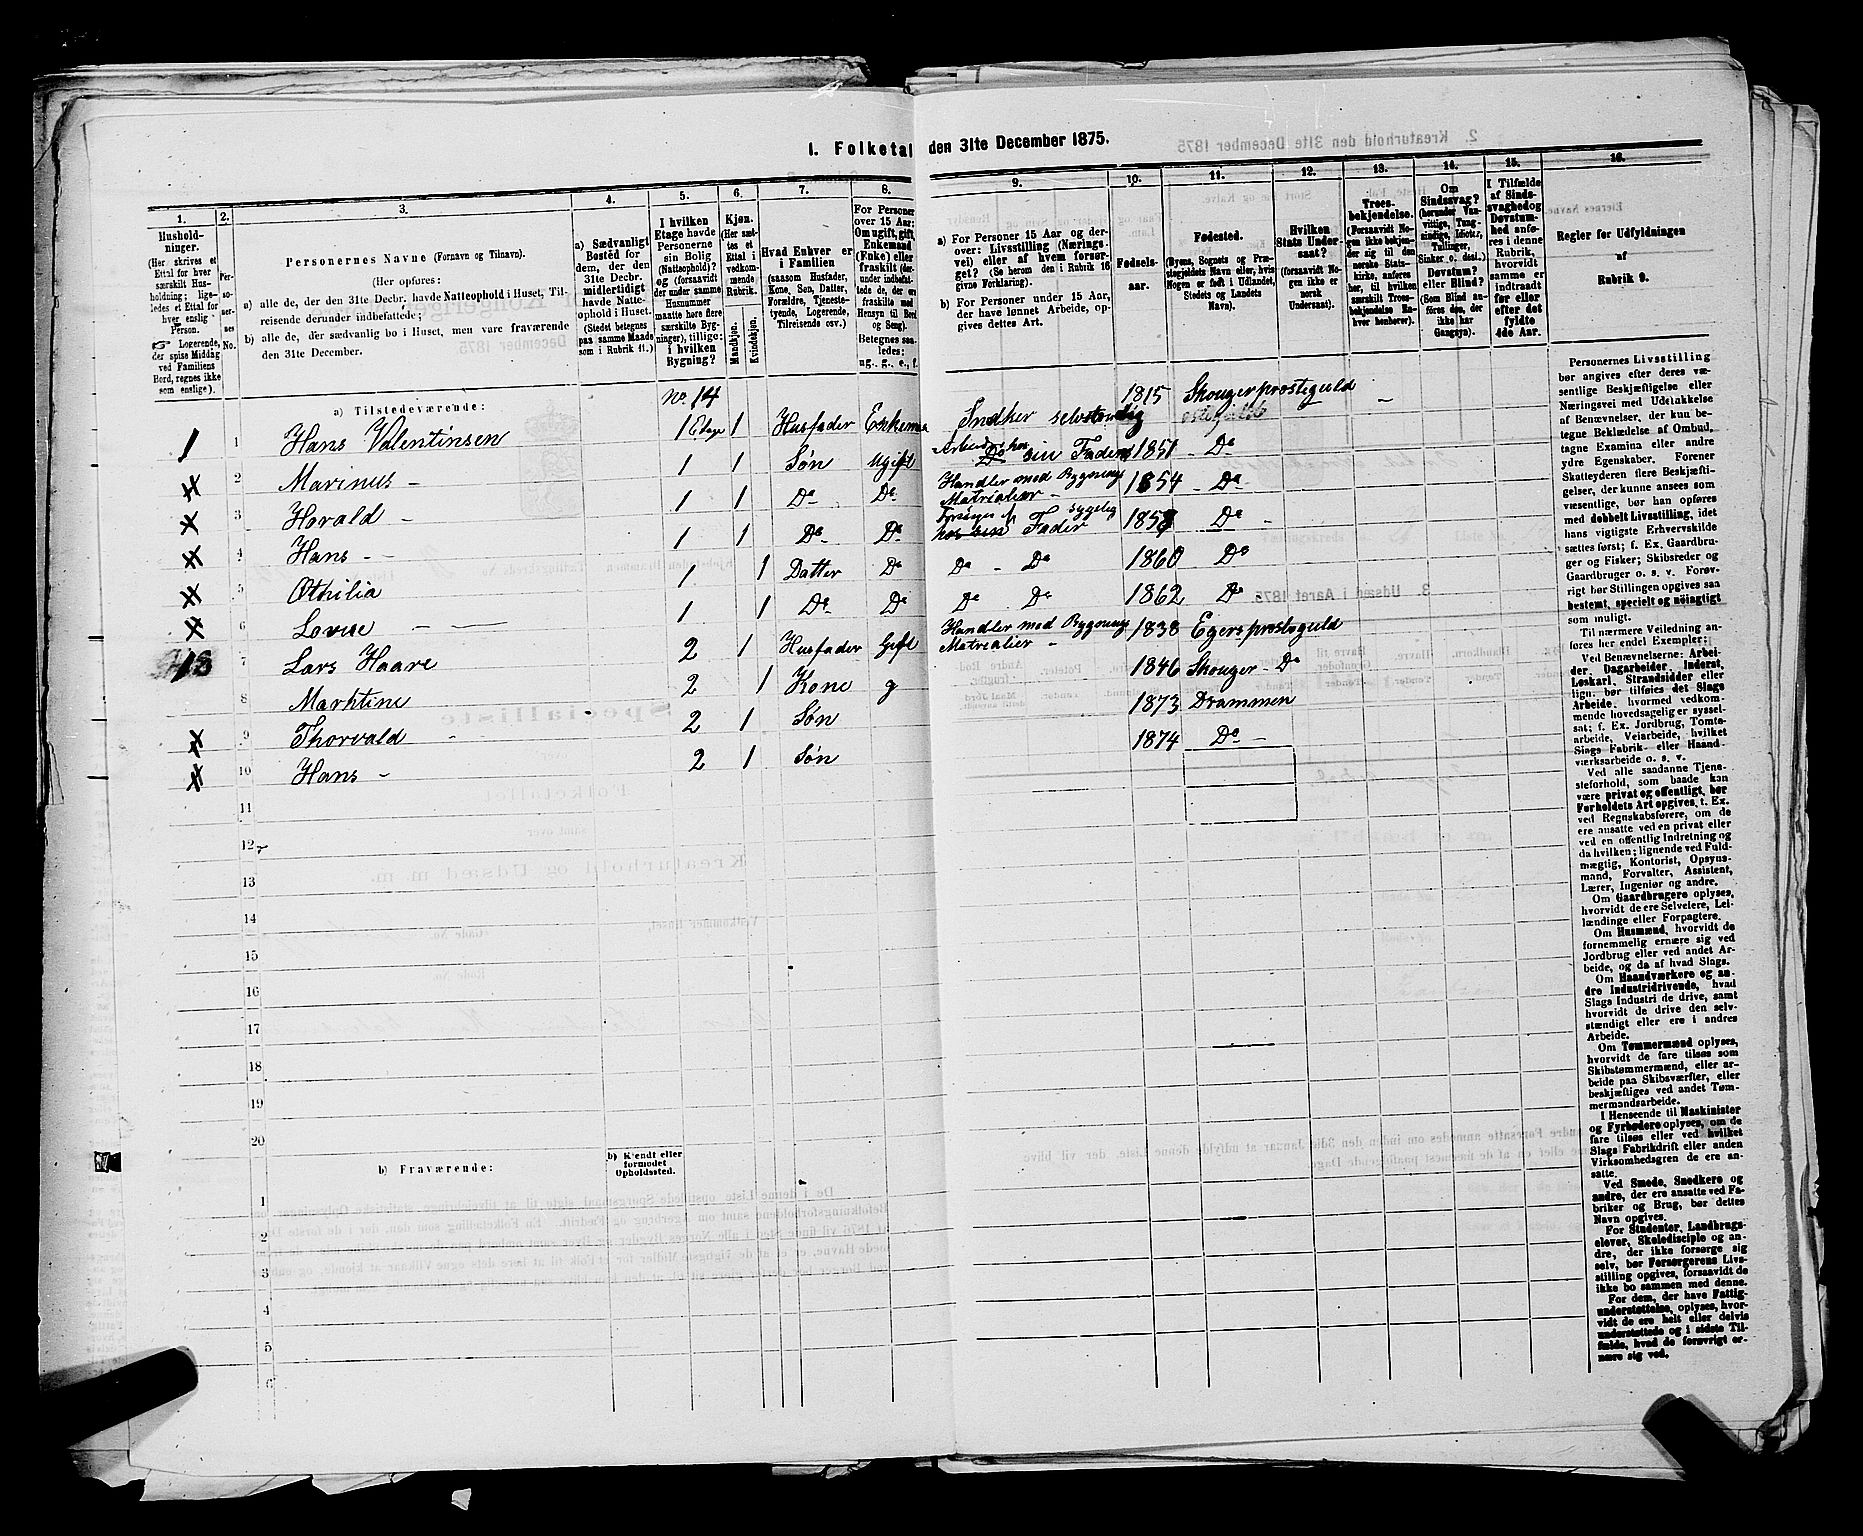 1. Folketal den 31te December 1875.
1. 2. 3. 4. 5. 6. 7. 8. 9. 10. 11. 12. 13. 14. 15. 16.
Hushold-
ninger.
(Her skrives et
Ettal for hver
særskilt Hus-
holdning; lige-
ledes et Ettal for
hver enslig
Person.
Logerende,
der spise Middag
ved Familiens
Bord, regnes ikke
som enslige).
Per-
so-
ner-
nes
No.
Personernes Navne (Fornavn og Tilnavn).
(Her opføres:
a) alle de, der den 31te Decbr. havde Natteophold i Huset, Til-
reisende derunder indbefattede;
b) alle de, der sædvanlig bo i Huset, men vare fraværende
den 31te December.
a) Sædvanligt
Bosted for
dem, der den
31te Decbr.
midlertidigt
havde Natte-
ophold i Huset.
(Stedet betegnes
paa samme Maade
som i Rubrik 11.)
I hvilken
Etage havde
Personerne
sin Bolig
(Natteophold)?
og (forsaavidt
der under samme
Husnummer
maatte høre flere
særskilte Byg-
ninger), tillige:
i hvilken
Bygning?
Kjøn.
(Her sæt-
tes et
Ettal i
vedkom-
mende
Rubrik.
Mandkjøn.
Kvindekjøn.
Hvad Enhver er
i Familien
(saasom Husfader,
Kone, Søn, Datter,
Forældre, Tjeneste-
tyende, Logerende,
Tilreisende osv.)
For Personer
over 15 Aar:
Om ugift, gift,
Enkemand
(Enke) eller
fraskilt (der-
under indbefat-
tede de, der ere
fraskilte med
Hensyn til Bord
og Seng).
Betegnes saa-
ledes:
ug., g., e., f.
a) For Personer 15 Aar og der-
over: Livsstilling (Nærings-
vei) eller af hvem forsør-
get? (Se herom den i Rubrik 16
givne Forklaring).
b) For Personer under 15 Aar,
der have lønnet Arbeide, op-
gives dettes Art.
Fødsels-
aar.
Fødested.
(Byens, Sognets og Præ-
stegjeldets Navn eller, hvis
Nogen er født i Udlandet,
Stedets og Landets
Navn).
Hvilken
Stats Under-
saat?
(forsaavidt No-
gen ikke er
norsk
Undersaat).
Troes-
bekjendelse.
(Forsaavidt No-
gen ikke bekjen-
der sig til den
norske Stats-
kirke, anføres
her, til hvilken
særskilt Troes-
bekjendelse En-
hver henhører).
Om
Sindssvag?
(herunder Van-
vittige, Tung-
sindige, Idioter,
Tullinger,
Sinker o. desl.)
Døvstum?
eller Blind?
(Som Blind an-
føres den, der
ikke har
Gangsyn).
I Tilfælde
af Sinds-
svaghed og
Døvstum-
hed anfø-
res i denne
Rubrik,
hvorvidt
samme er
indtraadt
før eller
efter det
fyldte
4de Aar.
Regler for Udfyldningen
af
Rubrik 9.
a) Tilstedeværende:
No. 14
1 1 Hans Valentinsen 1 Etage 1 Husfader Enkema Snedker selvstendig 1815 Skouger prosteguld
2 Marinus - 1 1 Søn Ugift Arbeider hos Do sin Fader 1851 Do
3 Harald - 1 1 Do Do Handler med Bygnings Matrialier - 1854 Do
4 Hans - 1 1 Do Do hos sin Fader sygelig 1857 Do
5 Othilia 1 1 Datter Do Do - Do 1860 Do
6 Lovise 1 1 Do Do Do Do 1862 Do
7 Lars Haare 2 1 Husfader Gift Handler med Bygnings Matrialier - 1838 Egers prosteguld
8 Marhtine 2 1 Kone g 1846 Skouger Do
9 Thorvald - 2 1 Søn 1873 Drammen
10 Hans - 2 1 Søn 1874 Do -
11
12
13
14
15
16
17
18
19
20
b) Fraværende:
b) Kjendt eller
formodet
Opholdssted.
1
2
3
4
5
6
Personernes Livsstilling
bør angives efter deres væ-
sentlige Beskjæftigelse eller
Næringsvei med Udelukkelse
af Benævnelser, der kun be-
tegne Beklædelse af Ombud,
tagne Examina eller andre
ydre Egenskaber. Forener
Skatteyderen flere Beskjæfti-
gelser, der kunne ansees som
væsentlige, bør han opføres
med dobbelt Livsstilling, idet
hans vigtigste Erhvervskilde
sættes først; f. Ex. Gaardbru-
ger og Fisker; Skibsreder og
Gaardbruger o. s. v. Forøv-
rigt bør Stillingen opgives saa
bestemt, specielt og nøiagtigt
som muligt.
Til nærmere Veiledning an-
føres her endel Exempler:
Ved Benævnelserne: Arbei-
der, Dagarbeider, Inderst,
Løskarl, Strandsidder eller
lign. bør tilføies det Slags
Arbeide, hvormed vedkom-
mende hovedsagelig er syssel-
sat; f. Ex. Jordbrug, Tomte-
arbeide, Veiarbeide, hvilket
Slags Fabrik- eller Haand-
værksarbeide o. s. v.
Ved alle saadanne Tjene-
steforhold, som baade kan
være privat og offentligt, bør
Forholdets Art opgives, t. Ex.
ved Regnskabsførere, om de
ere ansatte ved en privat eller
ved en offentlig Indretning og
da hvilken; lignende ved Fuld-
mægtig, Kontorist, Opsyns-
mand, Forvalter, Assistent,
Lærer, Ingeniør og andre.
Om Gaardbrugere oplyses,
hvorvidt de ere Selveiere, Lei-
lændinge eller Forpagtere.
Om Husmænd, hvorvidt de
fornemmelig ernære sig ved
Jordbrug eller ved andet Ar-
beide, og da af hvad Slags.
Om Haandværkere og an-
dre Industridrivende, hvad
Slags Industri de drive, samt
hvorvidt de drive den selv-
stændigt eller ere i andres
Arbeide.
Om Tømmermænd oplyses,
hvorvidt de fare tilsøs som
Skibstømmermænd, eller ar-
beide paa Skibsværfter, eller
beskjæftiges ved andet Tøm-
mermandsarbeide.
I Henseende til Maskinister
og Fyrbødere oplyses, om de
fare tilsøs eller ved hvilket
Slags Fabrikdrift eller anden
Virksomhedsgren de ere an-
satte.
Ved Smede, Snedkere og
andre, der ere ansatte ved Fa-
briker og Brug, bør dettes
Navn opgives.
For Studenter, Landbrugs-
elever, Skoledisciple og an-
dre, der ikke forsørge sig
selv, bør Forsørgerens Livs-
stilling opgives, forsaavidt de
ikke bo sammen med denne.
For dem, der have Fattig-
understøttelse, oplyses, hvor-
vidt de ere helt eller delvis
understøttede og i sidste Til-
fælde, hvad de forøvrigt er-
nære sig ved.